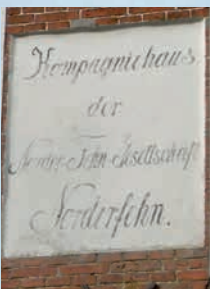 Kompagniehaus
der
Norder-Fehn-Gesellschaft
Norderfehn.